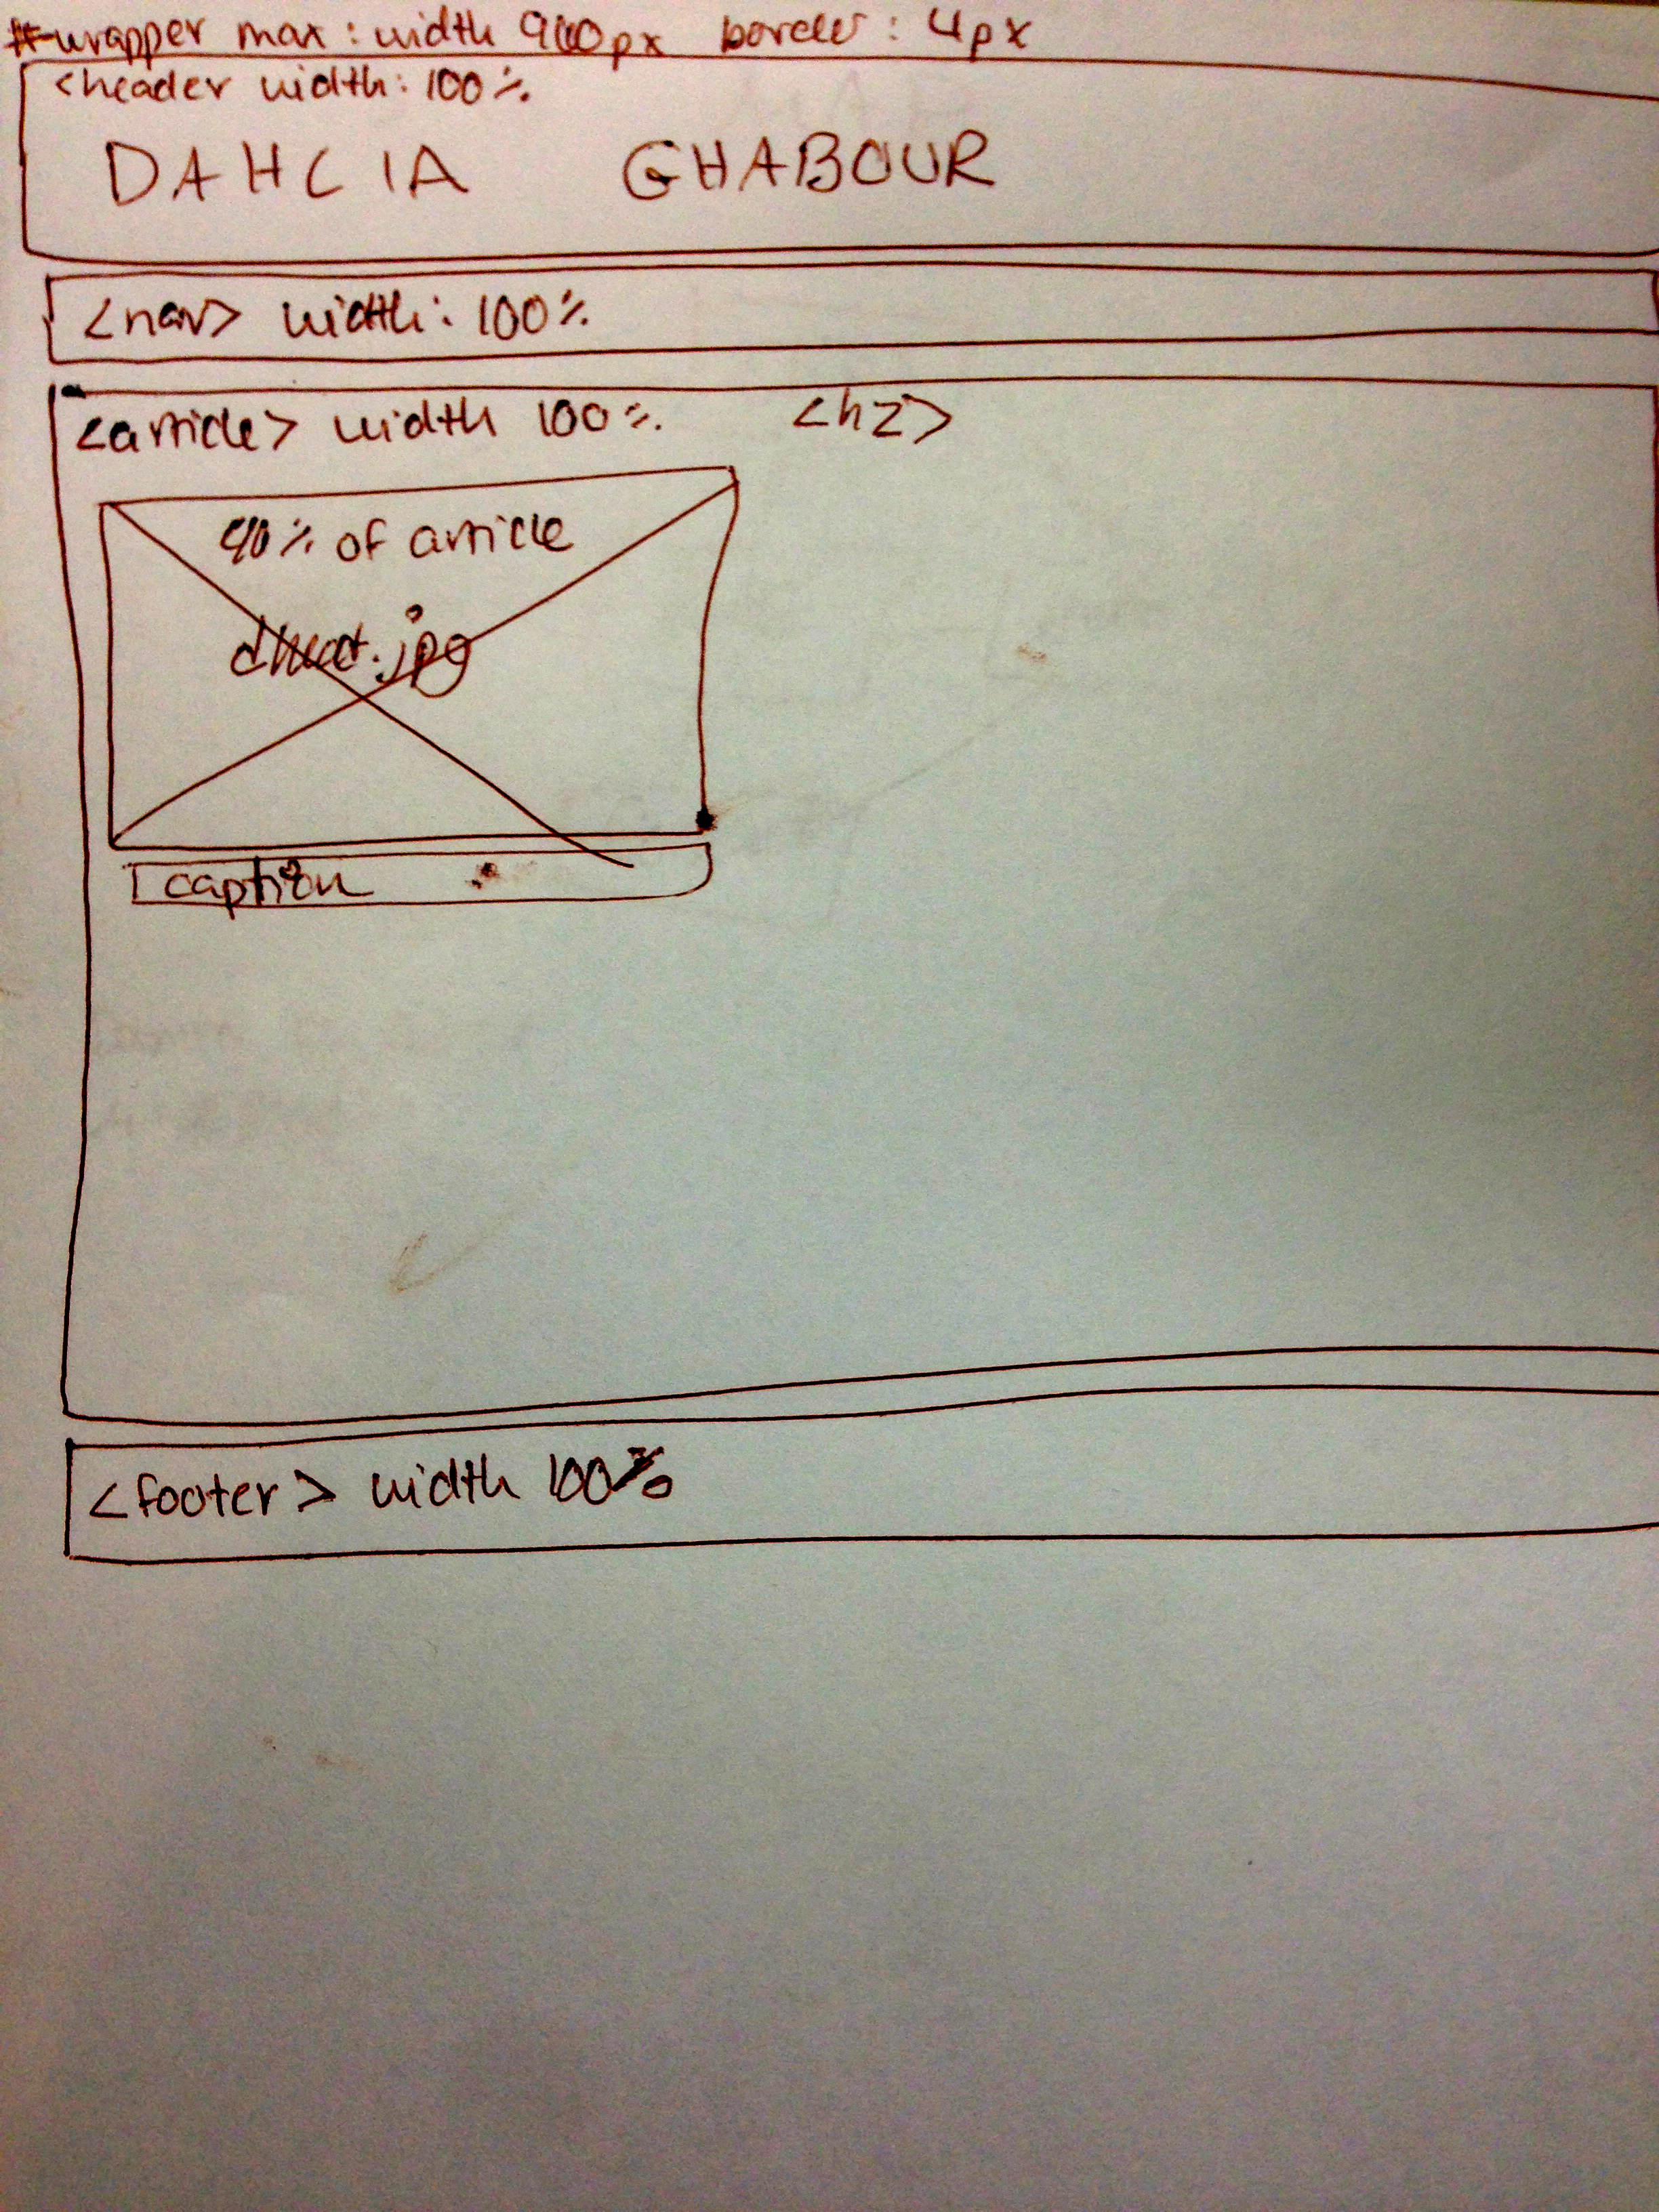 #wrapper max: width 900px border: 4px
<header width: 100%
DAHLIA GHABOUR
<nav> width: 100%
<article> width 100% <h2>
40% of article
.jpg
caption
<footer> width 100%